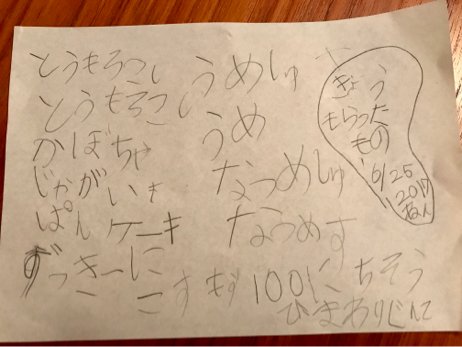 とうもろこし
とうもろこし
かぼちゃ
じゃがいも
ぱんケーキ
ずっきーに
うめしゅ
うめ
なつめしゅ
なつめす
すもも100こ
ちそう
ひまわり
きょう
もらった
もの
6/25
ねん